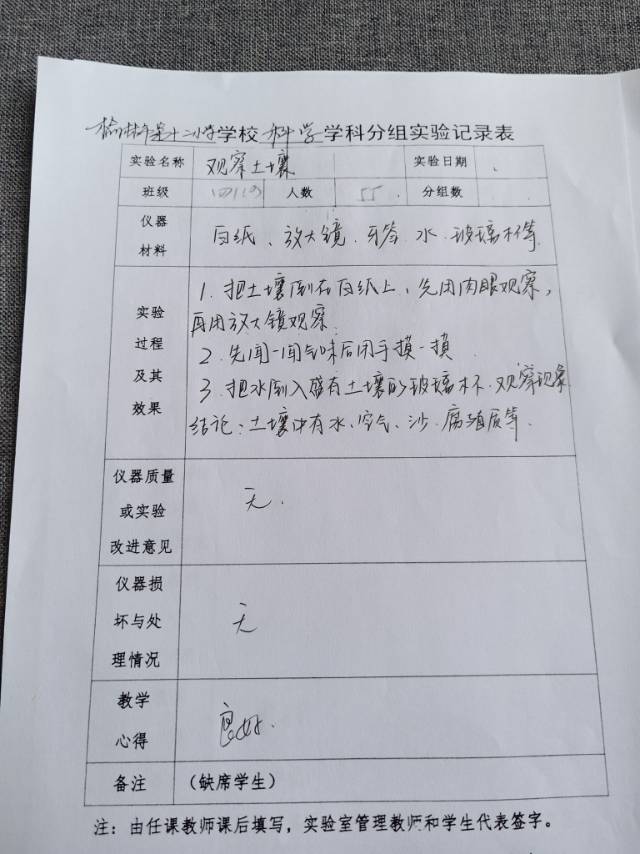 榆林市第十二小学学校 科学 学科分组实验记录表
实验名称 观察土壤 实验日期
班级 人数 55. 分组数
仪器材料 白纸、放大镜、牙签、水、玻璃杯等
实验过程及其效果
1. 把土壤倒在白纸上、先用肉眼观察,
再用放大镜观察.
2. 先闻一闻气味后用手摸一摸.
3. 把水倒入盛有土壤的玻璃杯.观察现象
结论:土壤中有水、空气、沙.腐殖质等.
仪器质量或实验改进意见 无.
仪器损坏与处理情况 无
教学心得 良好.
备注 (缺席学生)
注:由任课教师课后填写,实验室管理教师和学生代表签字。